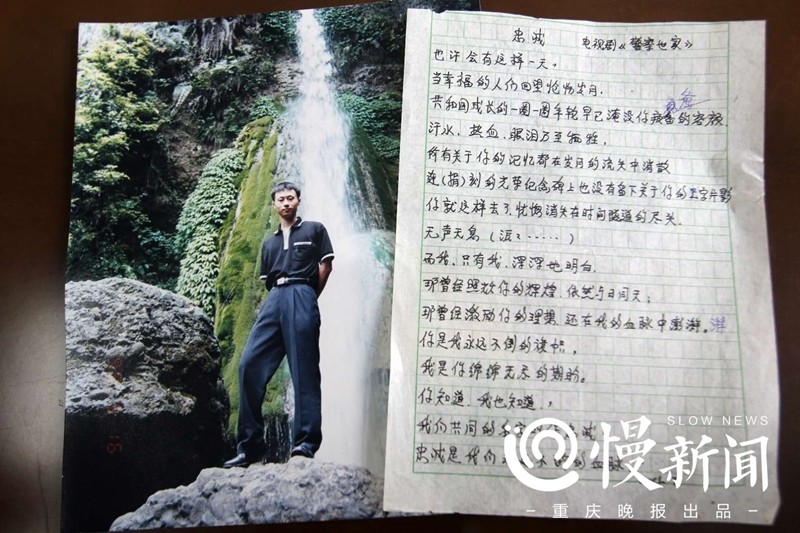 忠诚 电视剧《警察世家》
也许会有这样一天,
当幸福的人们回望恍惚岁月.
共和国成长的一圈一圈年轮早已淹没你疲惫的容颜.
汗水、热血、眼泪乃至牺牲,
所有关于你的记忆都在岁月的流失中消散
连(捐)刻的光荣纪念碑上也没有留下关于你的只字片影
你就这样去了,恍惚消失在时间隧道的尽头.
无声无息(泯……)
而我、只有我、深深地明白.
那曾经照耀你的辉煌、依然与日同天;
那曾经激动你的理想 还在我的血脉中澎湃。湃
你是我永远不倒的旗帜,
我是你绵绵无尽的期盼。
你知道、我也知道,
我们共同的 忠诚
忠诚是我们 的血脉
SLOW NEWS
慢新闻
- 重庆晚报出品 -